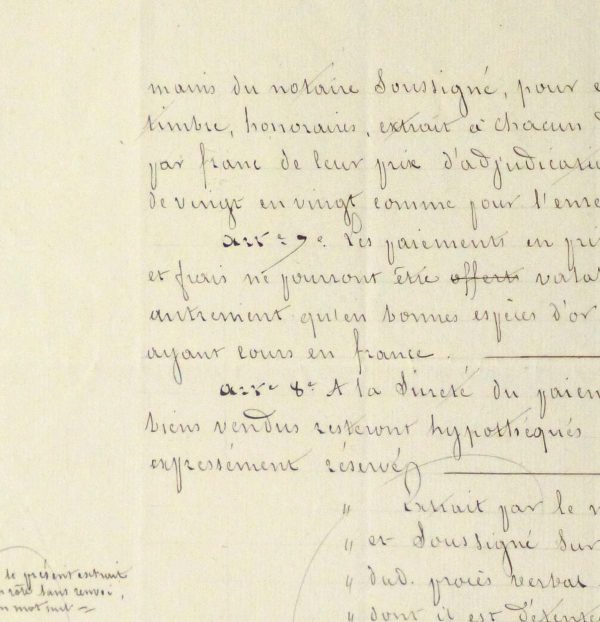 mains du notaire Soussigné, pour
timbre, honoraires, extrait à chacun
par franc de leur prix d'adjudicati
de vingt en vingt comme pour l'enre
art.e 7.e Les paiements en pri
et frais ne pourront être offerts vala
autrement qu'en bonnes espèces d'or
ayant cours en france.
art.e 8.e A la Sureté du paiem
biens vendus resteront hypothéqués
expressément réservé
" Extrait par le n
" et Soussigné Sur
" dud. procès verbal
" dont il est Détente
le présent extrait
rôle sans renvoi,
mot nul =